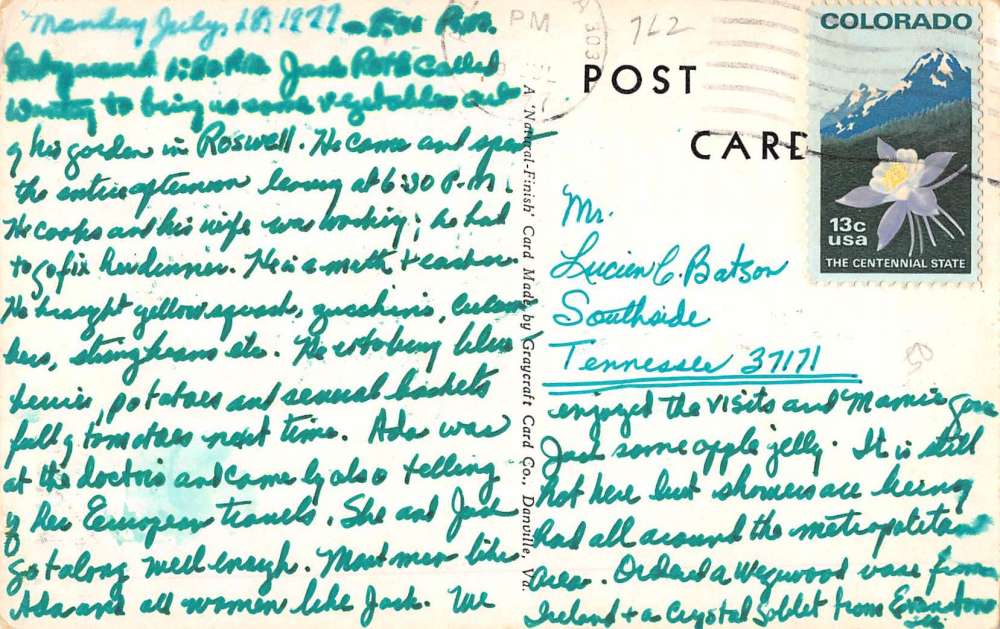 Monday July, 18, 1977 - 5:00 P.M.
1:30 P.M. Jack Roth called
wanting to bring us some vegetables out
of his garden in Roswell. He came and spent
the entire afternoon leaving at 6:30 P.M.
He cooks and his wife was working; he had
to go fix her dinner. He is a math teacher.
He braught yellow squash, zucchini, cucum
bers, stringbeans etc. He is to bring blue
berries, potatoes and several baskets
full of tomatoes next time. Ada was
at the doctors and came by also telling
of her European travels. She and Jack
got along well enough. Most men like
Ada and all women like Jack. We
A 'Natural-Finish' Card Made by Graycraft Card Co., Danville, Va.
PM
303
762
POST
CARD
COLORADO
13c
usa
THE CENTENNIAL STATE
Mr.
Lucien C. Batson
Southside
Tennessee 37171
50
enjoyed the visits and Mamie gave
Jack some apple jelly. It is still
hot here but showers are being
had all around the metropolitan
area. Ordered a Wegwood vase from
Ireland & a Crystal Goblet from Evanston
Ill